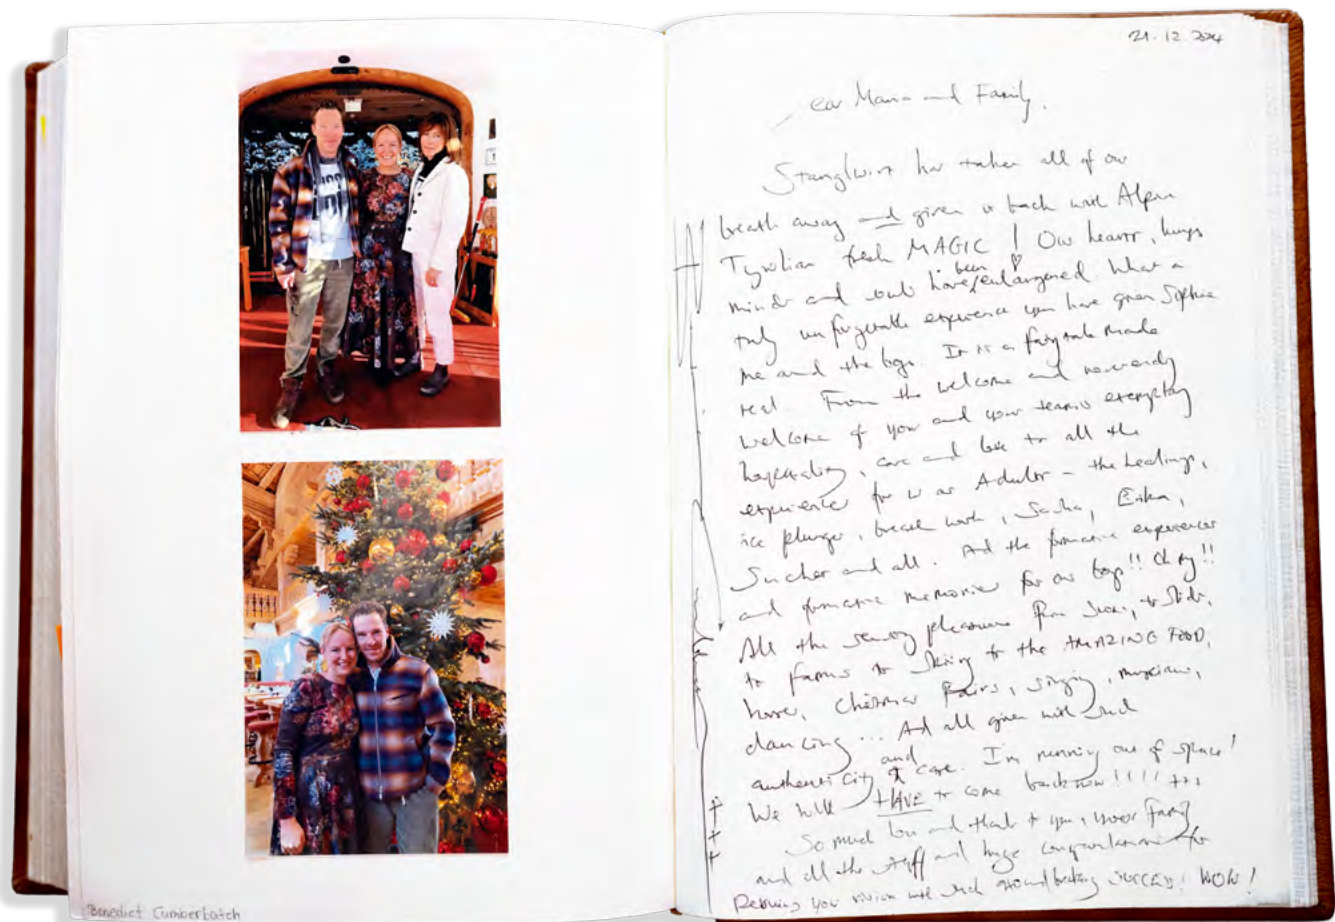 Benedict Cumberbatch
21.12.2024
ear Maria and Family,
Stanglwirt has taken all of our
breath away and given it back with Alpen
Tyrolian fresh MAGIC! Our hearts, lungs
minds and souls have been enlarged. What a
truly unforgettable experience you have given Sophie
me and the boys. It is a fairytale made
real. From the welcome and
welcome of you and your team's exemplary
hospitality, care and love to all the
experiences for us as Adults – the healings,
ice plunges, breath work, Sasha, Erika,
and all. And the formative experiences
and formative memories for our boys!! Oh my!!
All the sensory pleasures from Snow, to Slide,
to farms to Skiing to the AMAZING FOOD,
horses, Christmas Fairs, singing, musicians,
dancing... And all given with such
authenticity and care. I'm running out of space!
We will HAVE to come back now!!!! +++
So much love and thanks to you, your family
and all the staff and huge congratulations for
your vision with such groundbreaking SUCCESS! WOW!